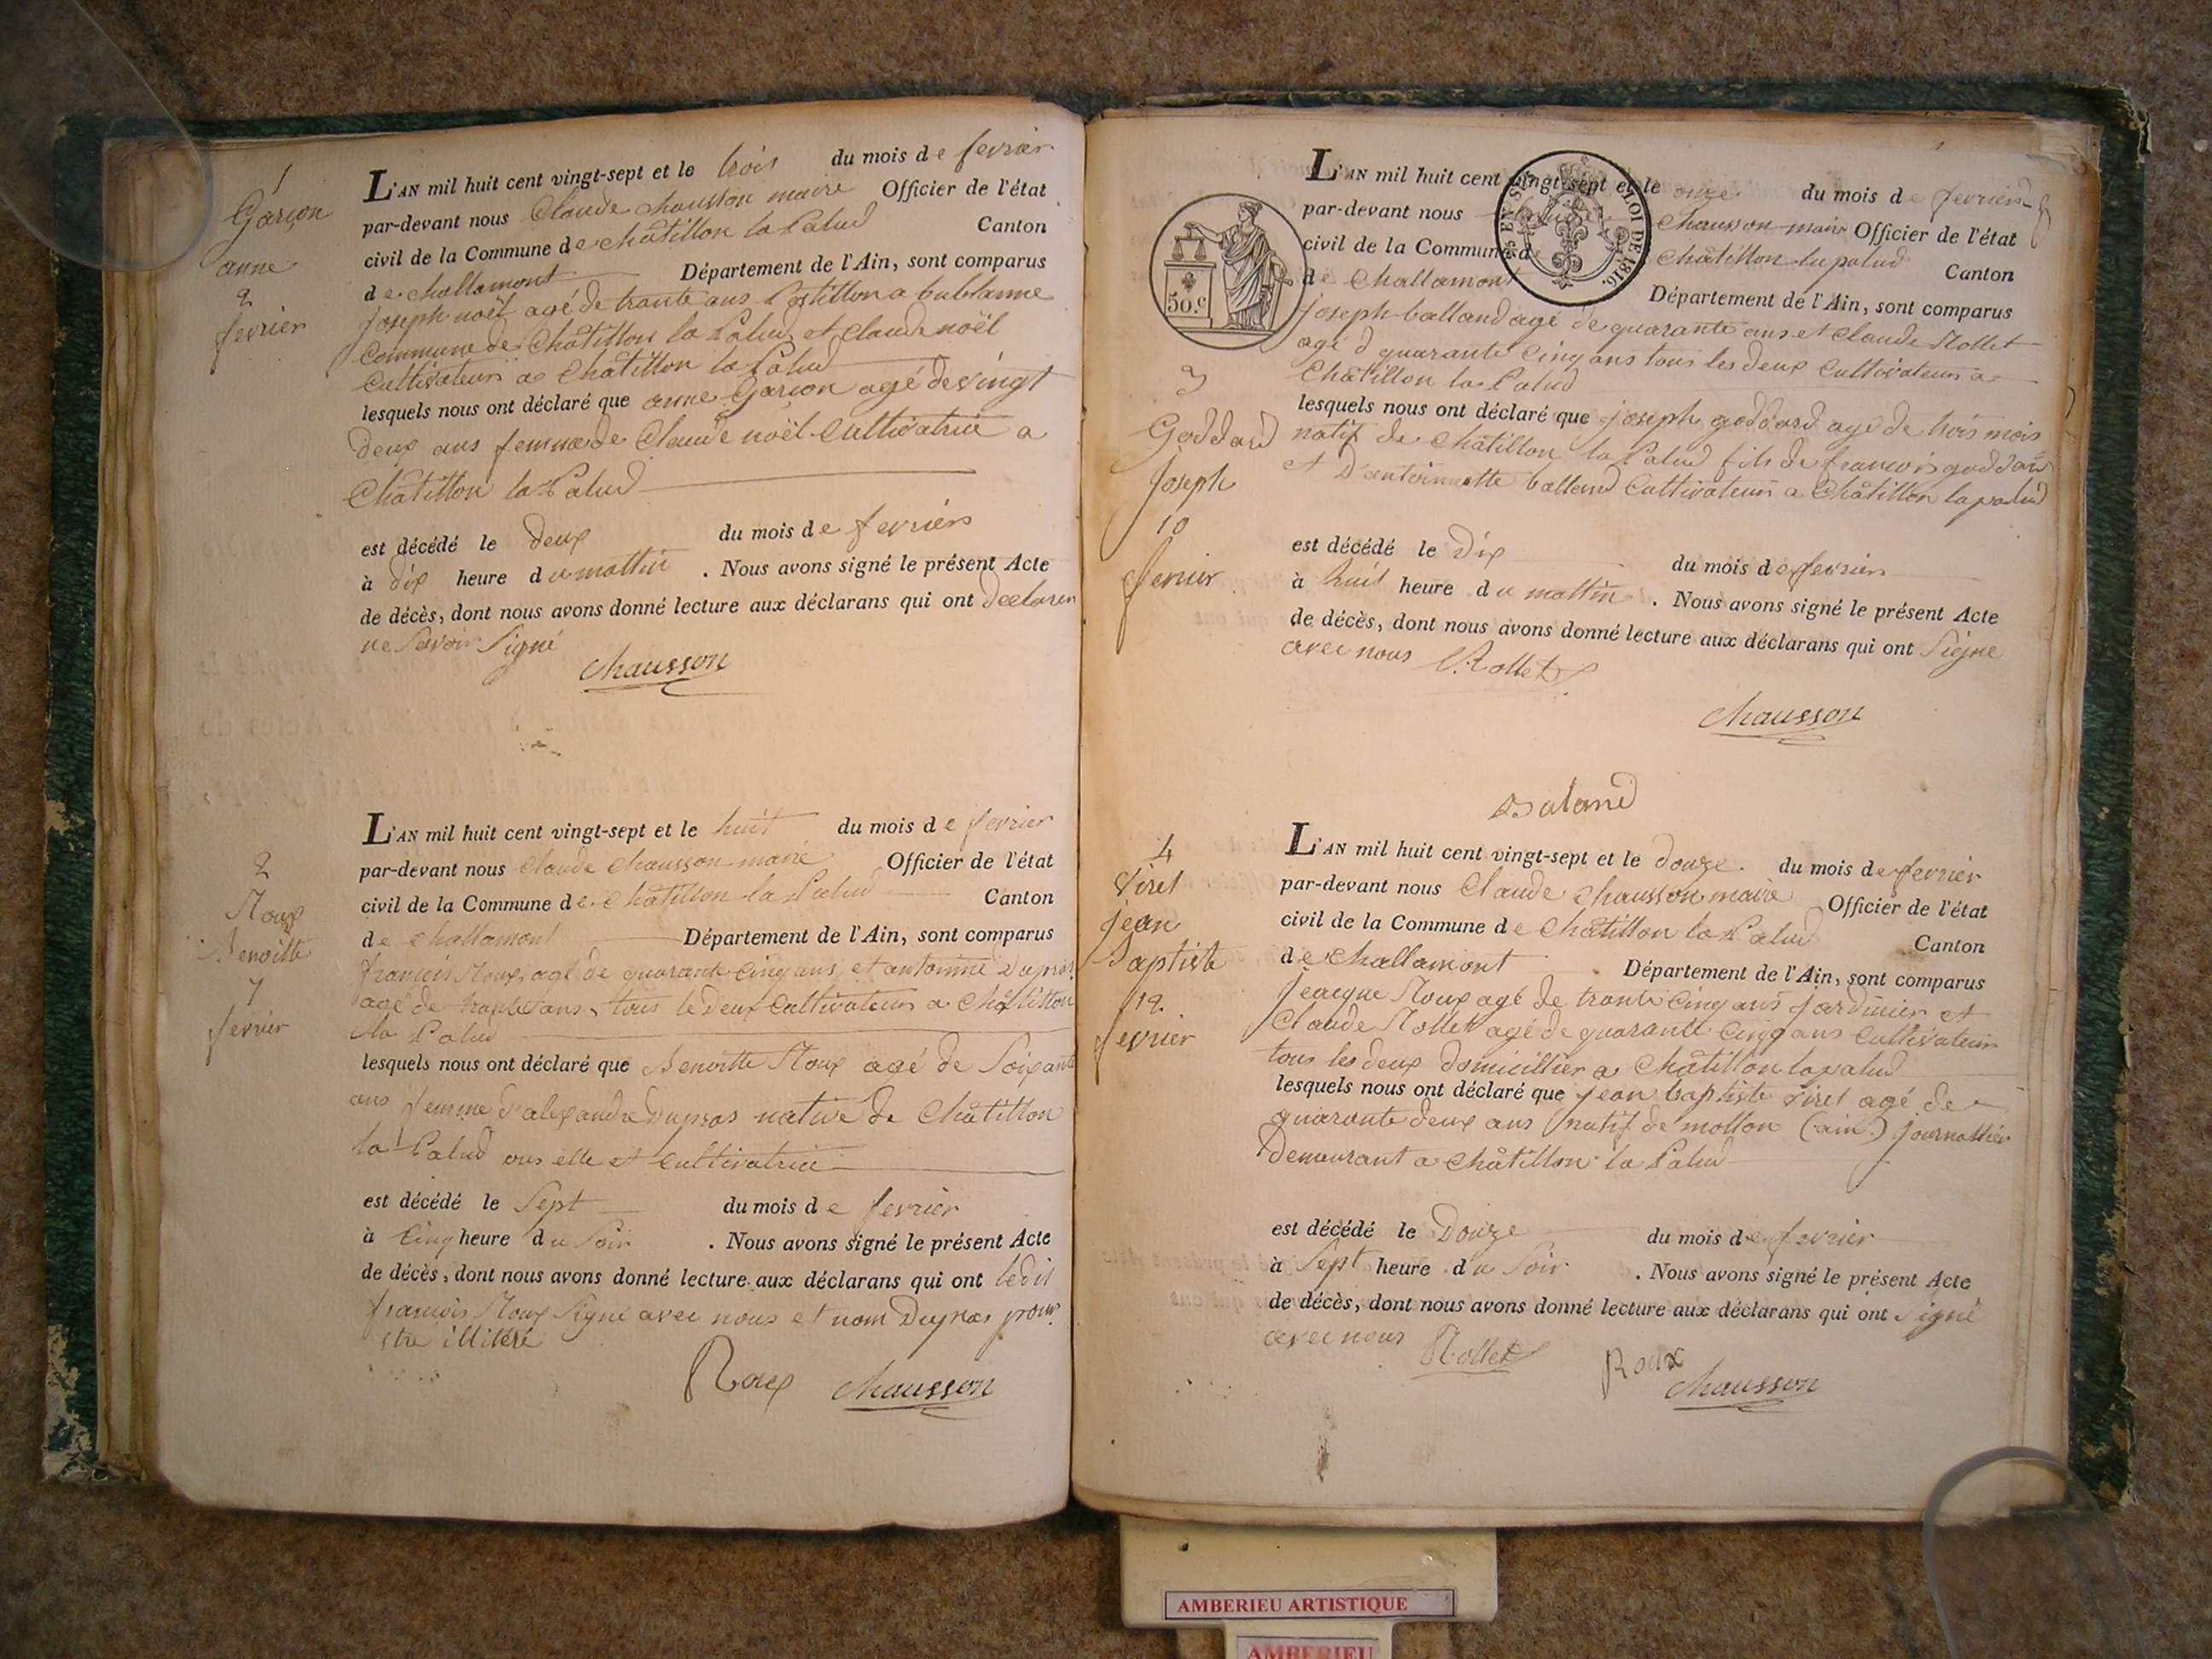 1
Garçon
anne
2
fevrier
L'AN mil huit cent vingt-sept et le trois du mois de fevrier
par-devant nous Claude chausson maire Officier de l'état
civil de la Commune de châtillon la Palud Canton
de challamont Département de l'Ain, sont comparus
joseph noël agé de trante ans Postillon a bublanne
Commune de Châtillon la Palud et Claude noël
Cultivateurs a Châtillon la Palud
lesquels nous ont déclaré que anne Garçon agé de vingt
deux ans femme de Claude noël Cultivatrice a
Châtillon la Palud
est décédé le deux du mois de fevriers
à dix heure du mattin . Nous avons signé le présent Acte
de décès, dont nous avons donné lecture aux déclarans qui ont declarer
ne Savoir Signé
chausson
2
Roux
Benoitte
7
fevrier
L'AN mil huit cent vingt-sept et le huit du mois de fevrier
par-devant nous Claude Chausson maire Officier de l'état
civil de la Commune de Châtillon la Palud Canton
de challamont Département de l'Ain, sont comparus
francois Roux agé de quarante Cinq ans et antoinne Dupras
agé de trante ans tous le deux Cultivateurs a Châtillon
la Palud
lesquels nous ont déclaré que Benoitte Roux agé de Soixante
ans femme d'alexandre Dupras native de Châtillon
la Palud elle et Cultivatrice
est décédé le Sept du mois de fevrier
à Cinq heure du Soir . Nous avons signé le présent Acte
de décès, dont nous avons donné lecture aux déclarans qui ont ledit
francois Roux Signé avec nous et nom Dupras pour
etre illiteré
Roux chausson
L'AN mil huit cent vingt-sept et le onze du mois de fevrier
par-devant nous Chausson maire Officier de l'état
civil de la Commune de Châtillon la palud Canton
de Challamont Département de l'Ain, sont comparus
LOI DE 1816.
50.c
joseph balland agé de quarante ans et Claude Rollet
agé d quarante Cinq ans tous les deux Cultivateurs a
Châtillon la Palud
3
Goddard
joseph
10
fevrier
lesquels nous ont déclaré que joseph goddard agé de trois mois
natif de Châtillon la Palud fils de francois goddard
et D'antoinnette balland Cultivateurs a Châtillon la palud
est décédé le Dix du mois de fevriers
à huit heure du mattin . Nous avons signé le présent Acte
de décès, dont nous avons donné lecture aux déclarans qui ont Signe
avec nous Rollet
chausson
Baland
4
Viret
jean
Baptiste
12
fevrier
L'AN mil huit cent vingt-sept et le Douze du mois de fevrier
par-devant nous Claude Chausson maire Officier de l'état
civil de la Commune de Châtillon la Palud Canton
de challamont Département de l'Ain, sont comparus
jeacque Roux agé de trante Cinq ans jardinier et
Claude Rollet agé de quarante Cinq ans Cultivateurs
tous les deux domicillier a Châtillon la palud
lesquels nous ont déclaré que jean baptiste Viret agé de
quarante deux ans natif de mollon (ain) journallier
Demeurant a Châtillon la Palud
est décédé le Douze du mois de fevrier
à Sept heure du Soir . Nous avons signé le présent Acte
de décès, dont nous avons donné lecture aux déclarans qui ont signé
avec nous Rollet Roux
chausson
AMBERIEU ARTISTIQUE
AMBERIEU